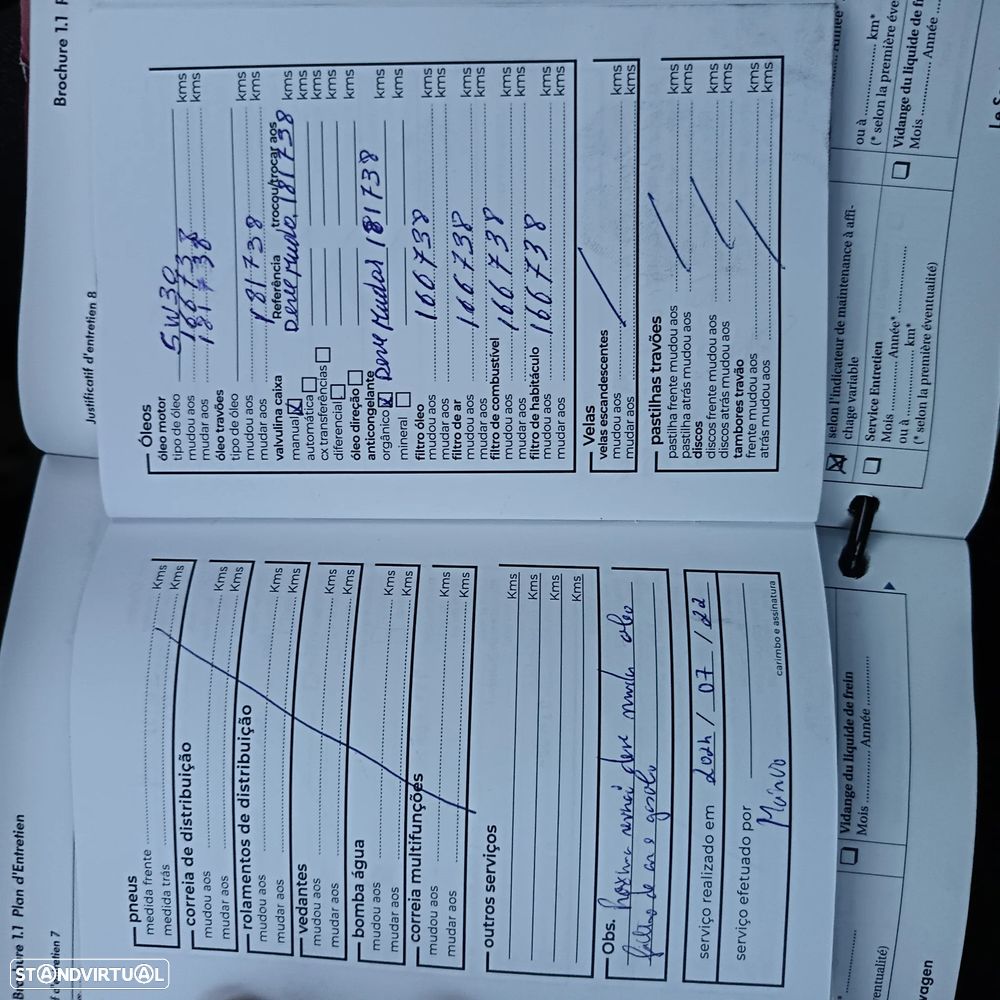 Brochure 1.1 Plan d'Entretien
pneus
medida frente Kms
medida trás Kms
correia de distribuição
mudou aos Kms
mudar aos Kms
rolamentos de distribuição
mudou aos Kms
mudar aos Kms
vedantes
mudou aos Kms
mudar aos Kms
bomba água
mudou aos Kms
mudar aos Kms
correia multifunções
mudou aos Kms
mudar aos Kms
outros serviços
Kms
Kms
Kms
Kms
Obs. deve mudar oleo
filtro de ar e
serviço realizado em 2024 / 07 / 22
serviço efetuado por
carimbo e assinatura
Vidange du liquide de frein
Mois Année
entualité)
wagen
STANDVIRTUAL
Brochure 1.1 P
Justificatif d'entretien 8
Óleos
óleo motor
tipo de óleo 5W30
mudou aos 166738 kms
mudar aos 181738 kms
óleo travões
tipo de óleo
mudou aos kms
mudar aos 181738 kms
valvulina caixa Referência trocou/trocar aos
manual Deve Mudar 181738 kms
automática kms
cx transferências kms
diferencial kms
óleo direção kms
anticongelante
orgânico Deve Mudar 181738 kms
mineral kms
filtro óleo
mudou aos 166738 kms
mudar aos kms
filtro de ar
mudou aos 166738 kms
mudar aos kms
filtro de combustível
mudou aos 166738 kms
mudar aos kms
filtro de habitáculo
mudou aos 166738 kms
mudar aos kms
Velas
velas escandescentes
mudou aos kms
mudar aos kms
pastilhas travões
pastilha frente mudou aos kms
pastilha atrás mudou aos kms
discos
discos frente mudou aos kms
discos atrás mudou aos kms
tambores travão
frente mudou aos kms
atrás mudou aos kms
selon l'indicateur de maintenance à affi-
chage variable
Service Entretien
Mois Année*
ou à km*
(* selon la première éventualité)
ou à km*
(* selon la première éve
Vidange du liquide de fr
Mois Année